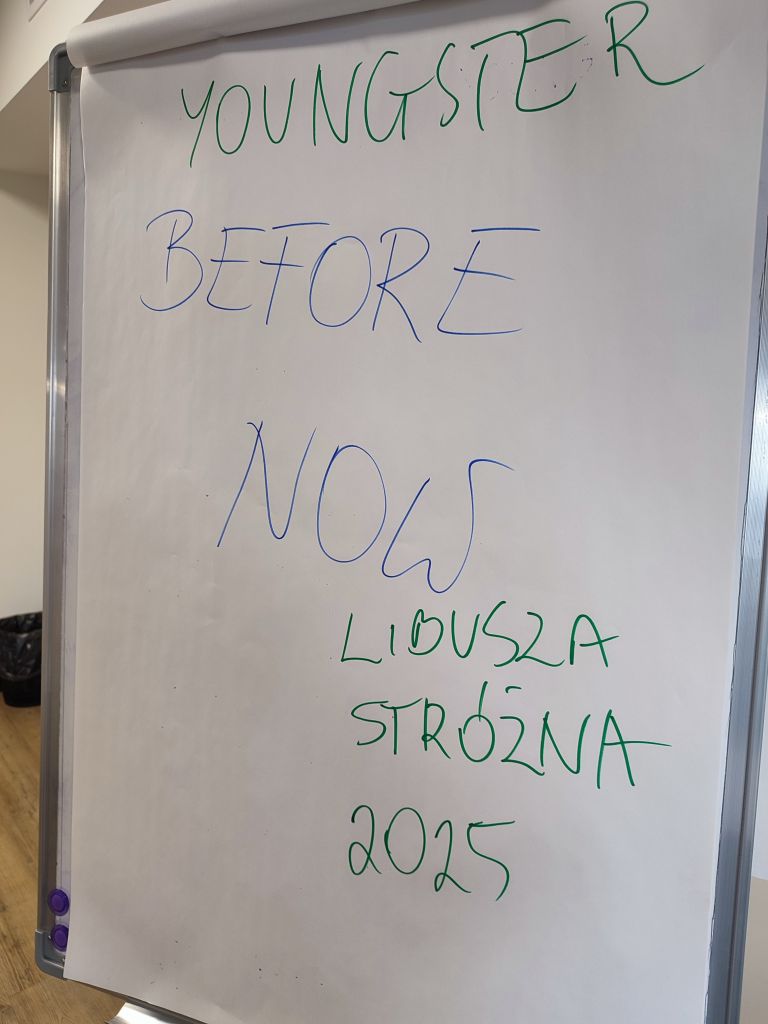 YOUNGSTER
BEFORE
NOW
LIBUSZA
STRÓŻNA
2025